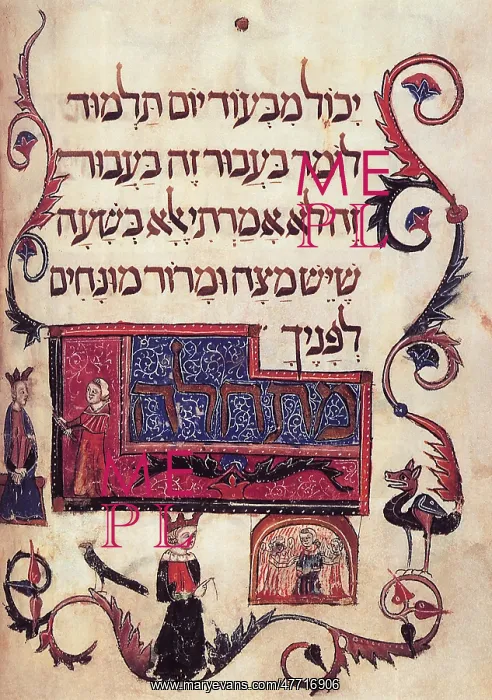 יכול מבעוד יום תלמוד
לומר בעבור זה בעבור
זה לא אמרתי אלא בשעה
שיש מצה ומרור מונחים
לפניך
מתחלה
ME
PL
ME
PL
www.maryevans.com/47716906